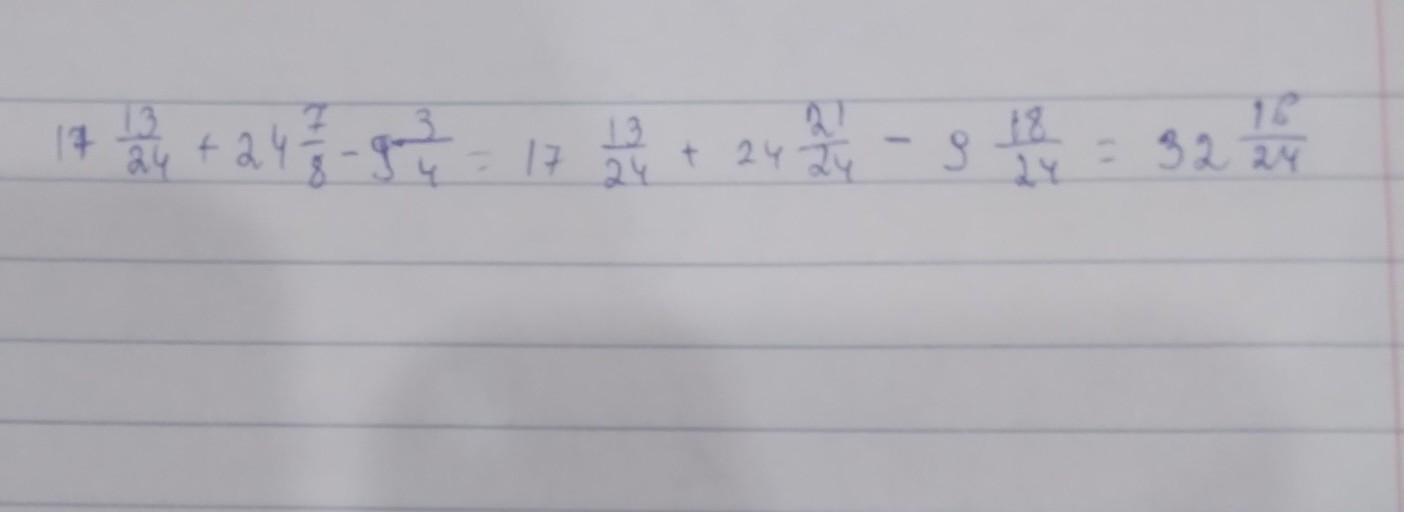 17 13/24 + 24 7/8 - 9 3/4 = 17 13/24 + 24 21/24 - 9 18/24 = 32 16/24